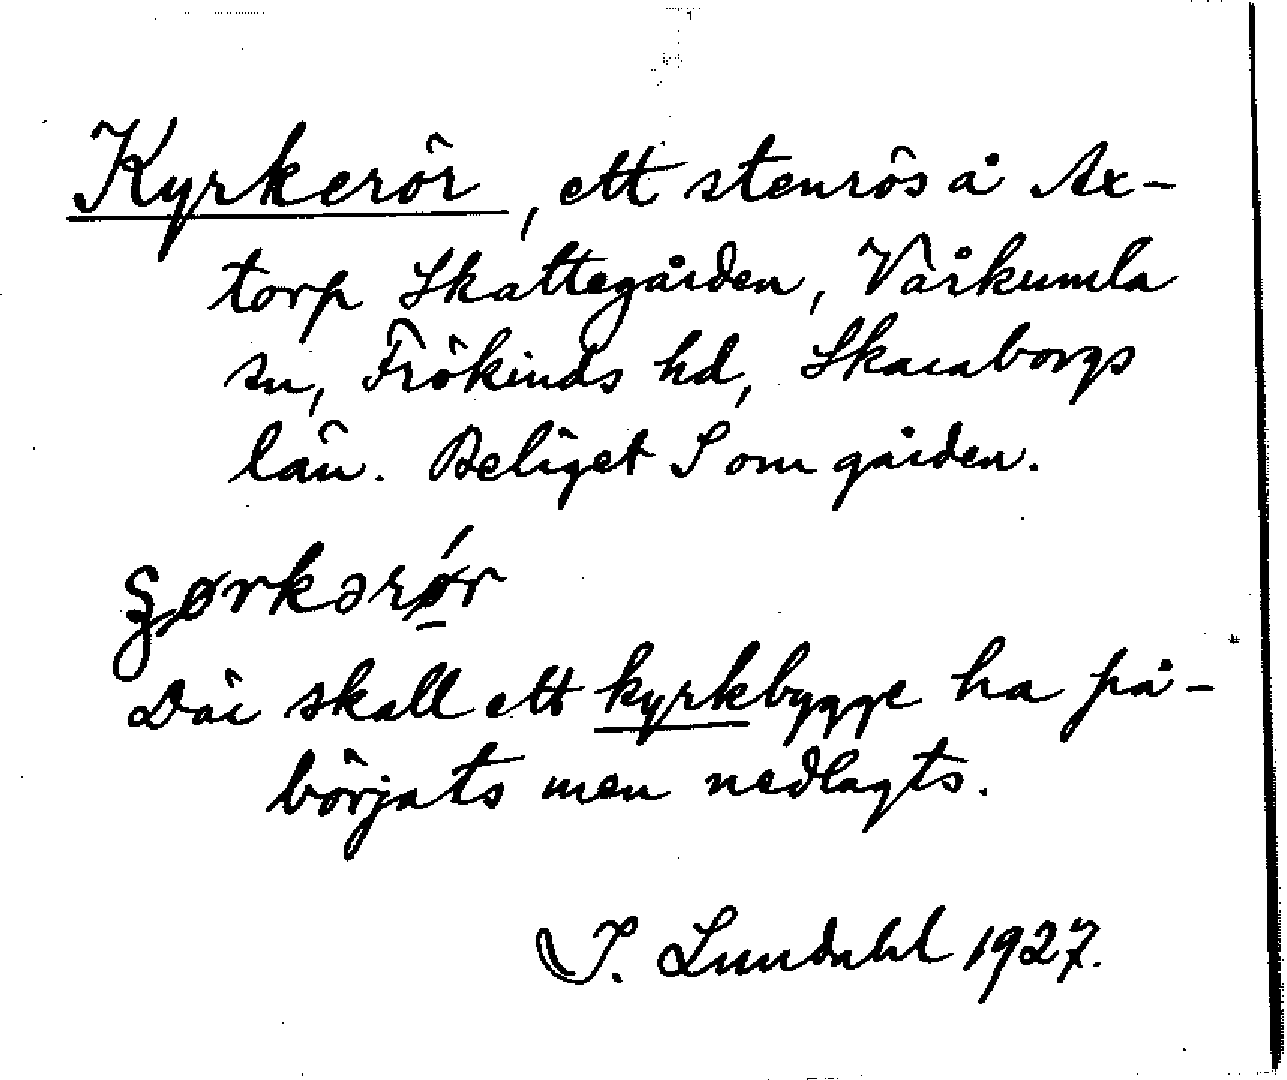 Kyrkerör, ett stenrös å Ax-
torp Skattegården, Vårkumla
sn, Frökinds hd, Skaraborgs
län. Beläget S om gården.
ʒørkərǿr
Där skall ett kyrkbygge ha på-
börjats men nedlagts.
I. Lundahl 1927.